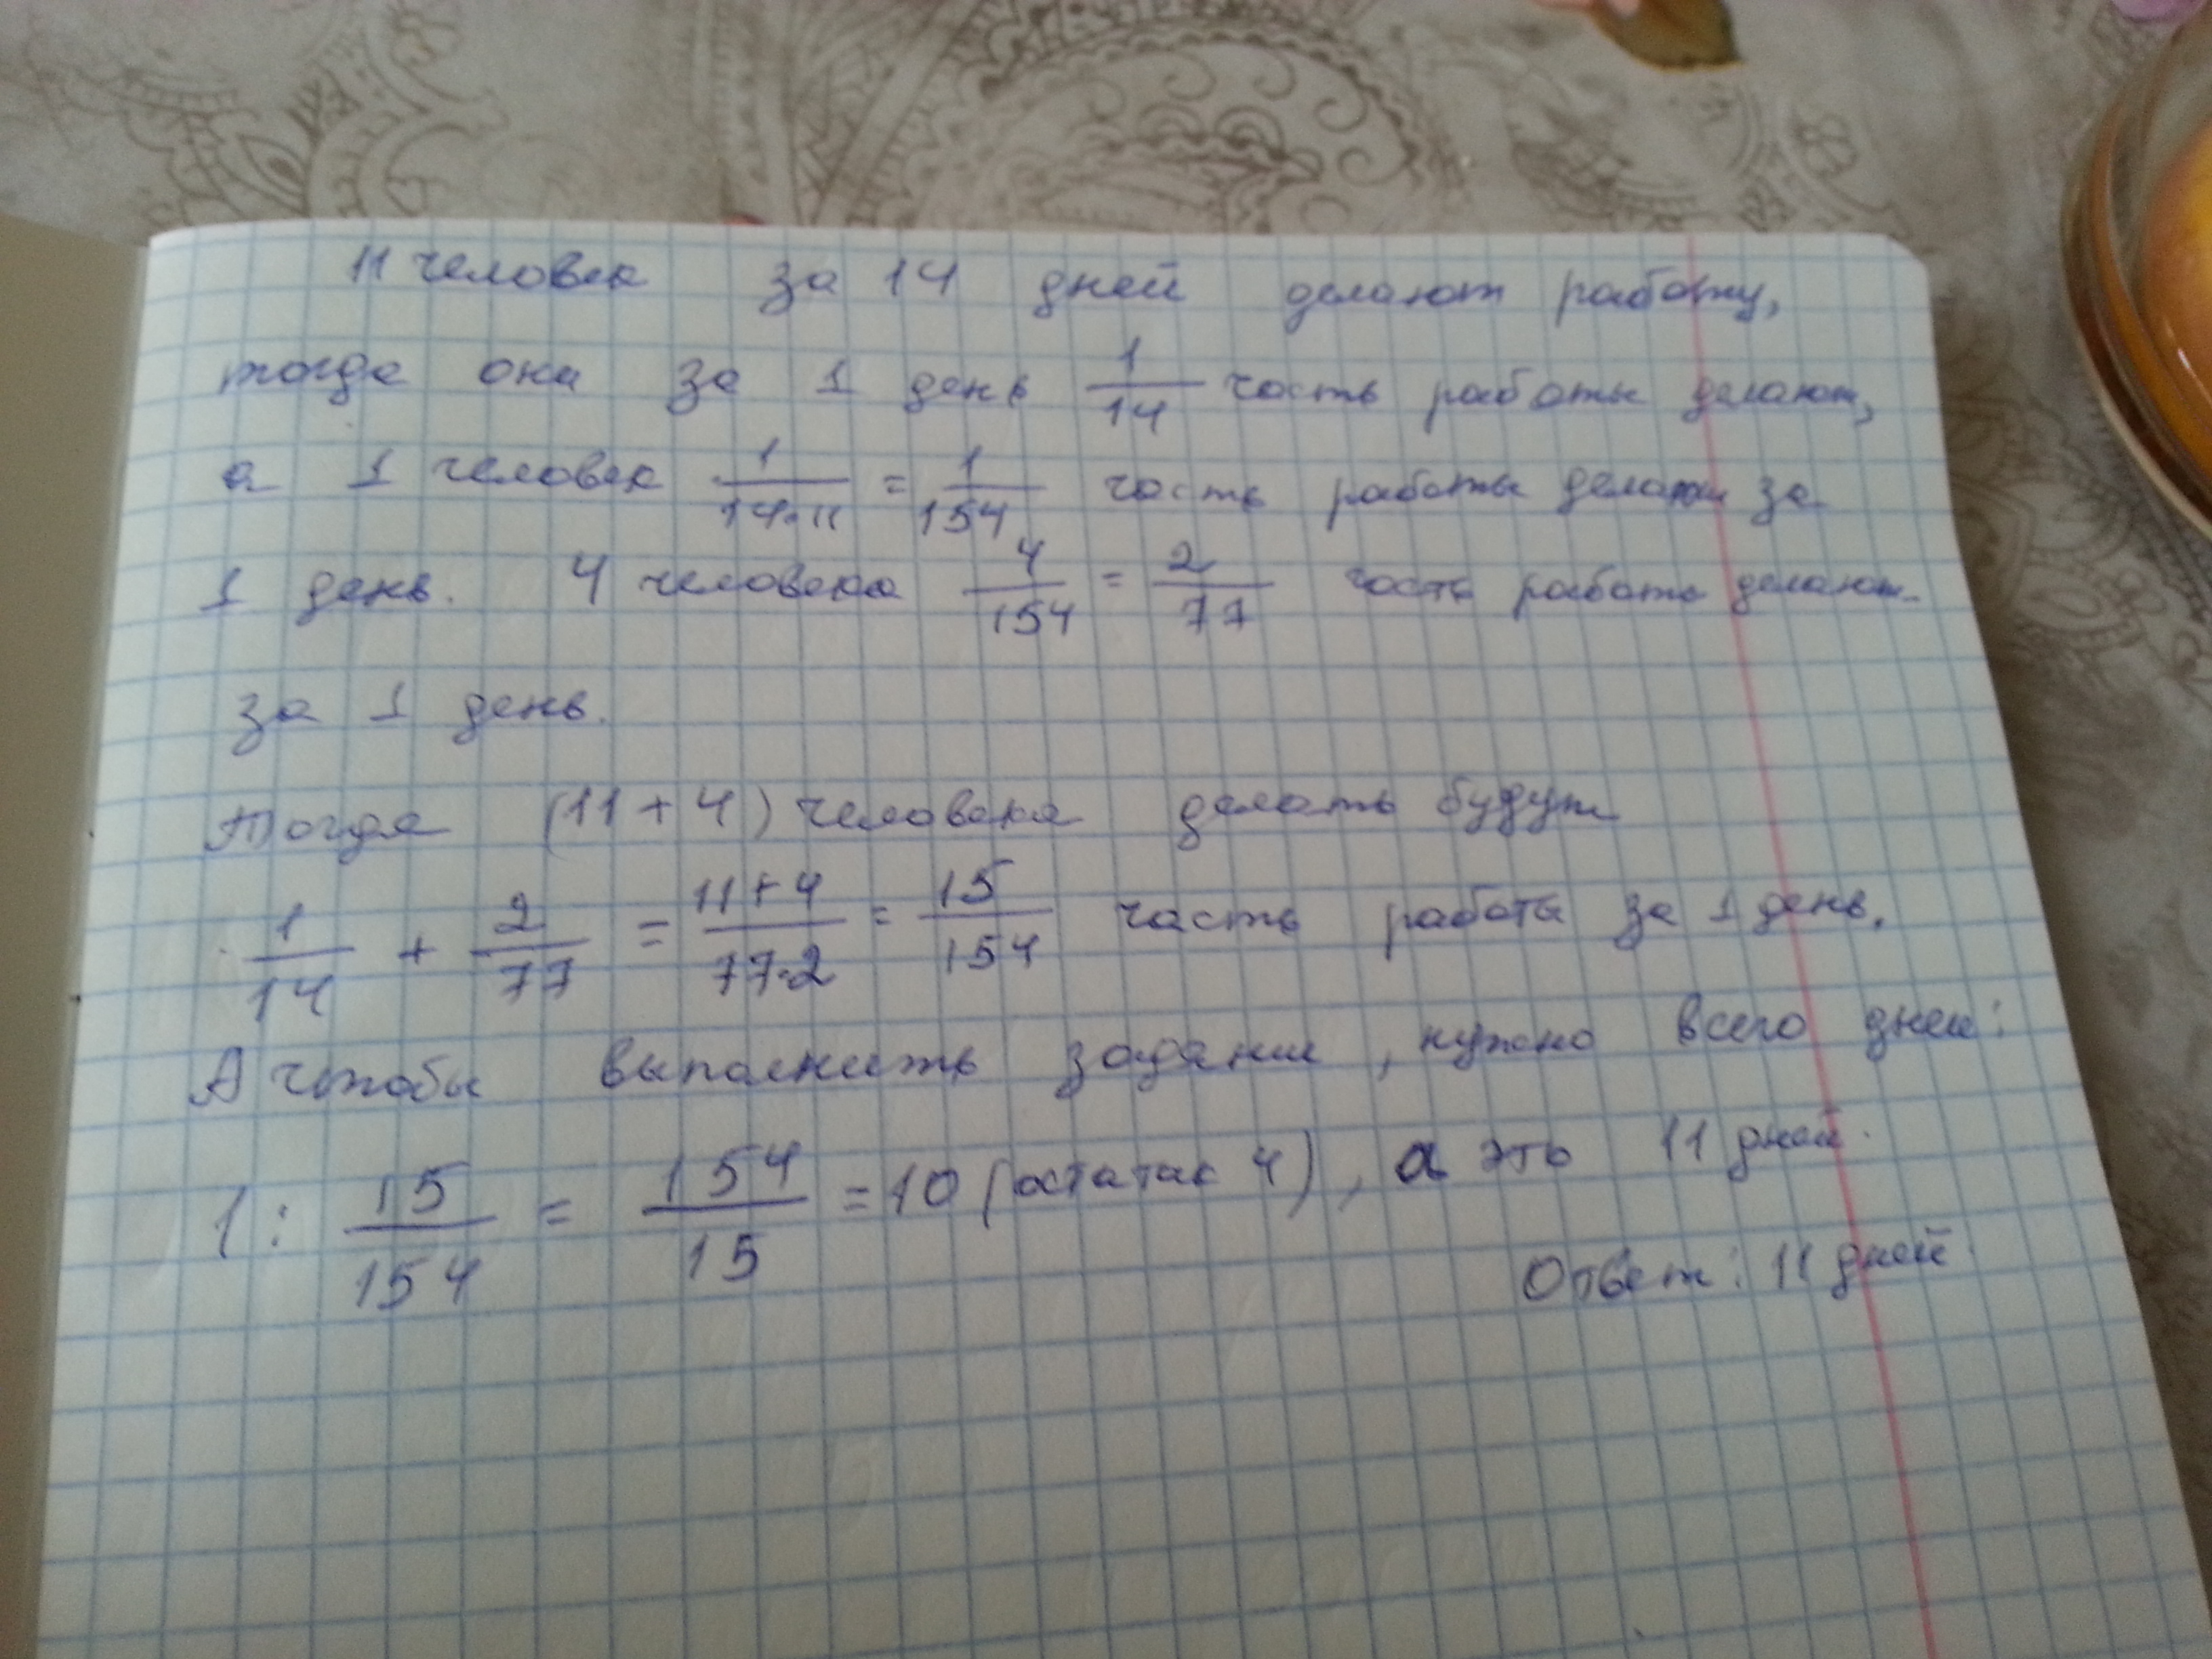 11 человек за 14 дней делают работу,
тогда они за 1 день 1/14 часть работы делают,
а 1 человек 1/14·11 = 1/154 часть работы делает за
1 день. 4 человека 4/154 = 2/77 часть работы делают
за 1 день.
Тогда (11+4) человека делать будут
1/14 + 2/77 = 11+4/77·2 = 15/154 часть работы за 1 день.
А чтобы выполнить задание, нужно всего дней:
1 : 15/154 = 154/15 = 10 (остаток 4), а это 11 дней.
Ответ: 11 дней